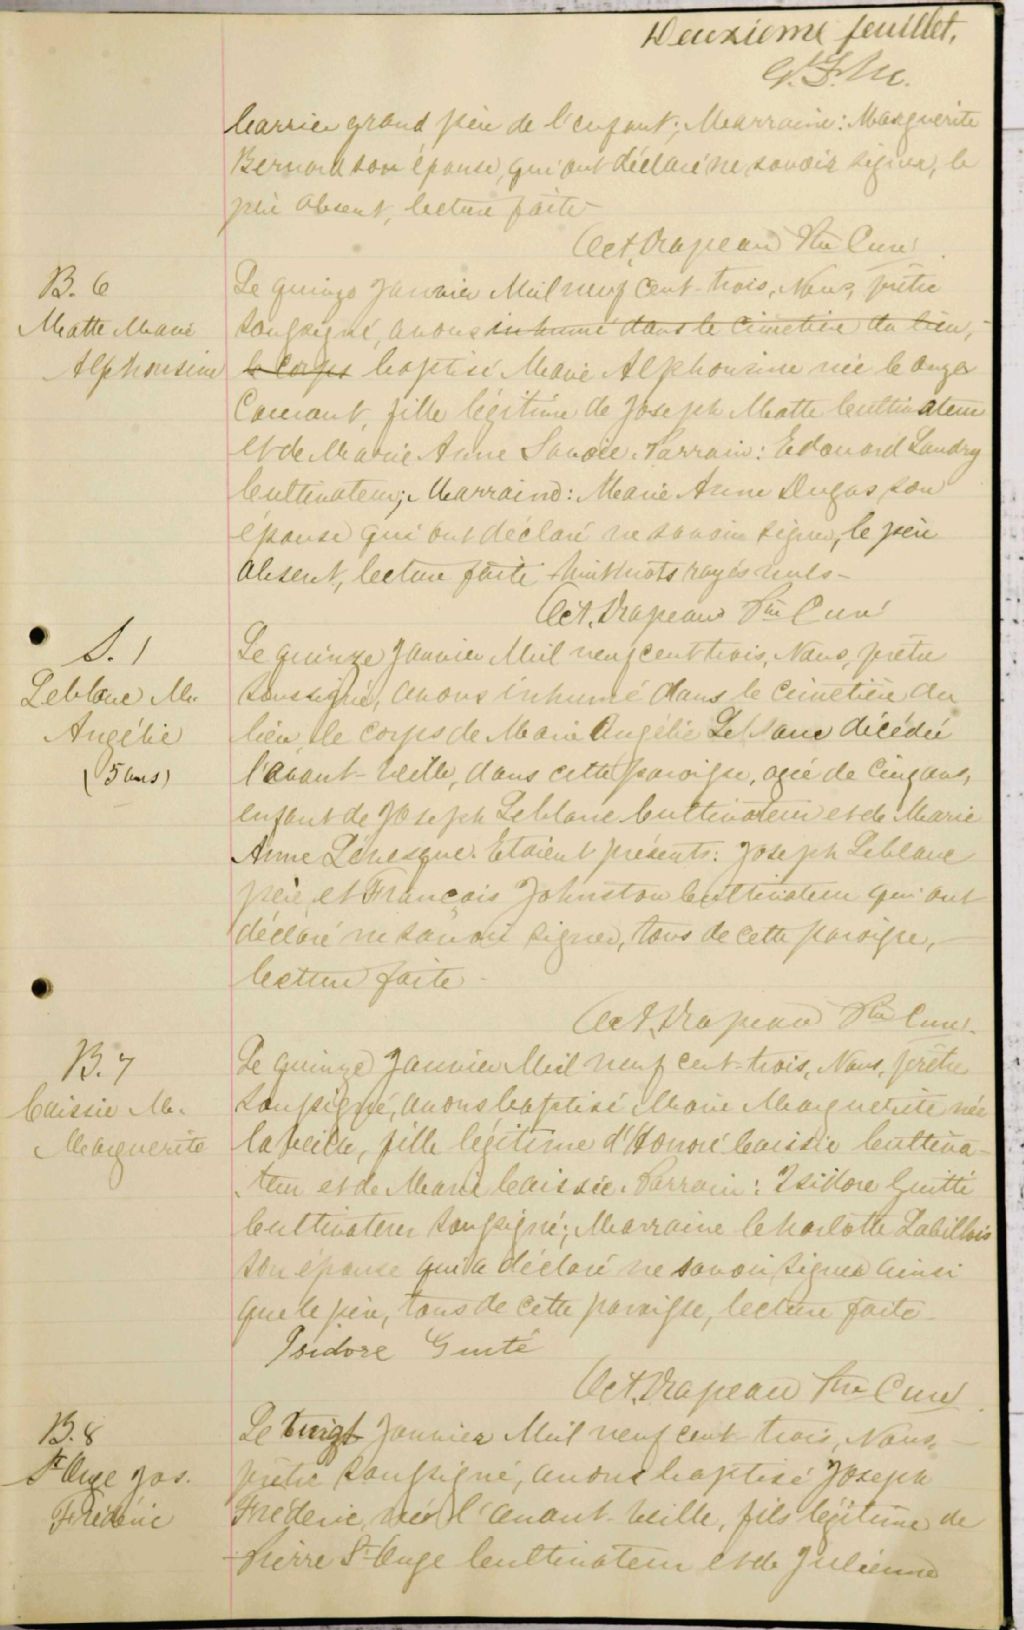 Deuxième feuillet.
grand père de l'enfant; Marraine: Marguerite
Bernard son épouse, qui ont déclaré ne savoir signer, le
père absent, lecture faite
Oct. Drapeau Ptre Curé
B. 6
Matte Marie
Alphonsine
Le quinze Janvier Mil neuf cent trois, Nous, prêtre
soussigné, avons inhumé dans le cimetière du lieu,
le corps baptisé Marie Alphonsine née le onze
Courant, fille légitime de Joseph Matte Cultivateur
et de Marie Anne Savoie. Parrain: Edouard Landry
Cultivateur; Marraine: Marie Anne Dugas son
épouse qui ont déclaré ne savoir signer, le père
absent, lecture faite huit mots rayés nuls -
Oct. Drapeau Ptre Curé
S. 1
Leblanc M.
Angélie
(5 ans)
Le quinze Janvier Mil neuf cent trois, Nous, prêtre
soussigné, avons inhumé dans le cimetière du
lieu, le corps de Marie Angélie LeBlanc décédée
l'avant-veille, dans cette paroisse, agée de cinq ans,
enfant de Joseph Leblanc Cultivateur et de Marie
Anne Lévesque. Etaient présents: Joseph Leblanc
père, et François Johnston Cultivateur qui ont
déclaré ne savoir signer, tous de cette paroisse,
lecture faite -
Oct. Drapeau Ptre Curé.
B. 7
Caissie M.
Marguerite
Le quinze Janvier Mil neuf cent trois, Nous, prêtre
soussigné, avons baptisé Marie Marguerite née
la veille, fille légitime d'Honoré Caissie Cultiva-
teur et de Marie Caissie. Parrain: Isidore Guitté
Cultivateur soussigné; Marraine Charlotte Labillois
son épouse qui a déclaré ne savoir signer ainsi
que le père, tous de cette paroisse, lecture faite -
Isidore Guité
Oct. Drapeau Ptre Curé
B. 8
St Onge Jos.
Fréderic
Le vingt Janvier Mil neuf cent trois, Nous,
prêtre soussigné, avons baptisé Joseph
Fréderic, né l'avant-veille, fils légitime de
Pierre St Onge Cultivateur et de Julienne